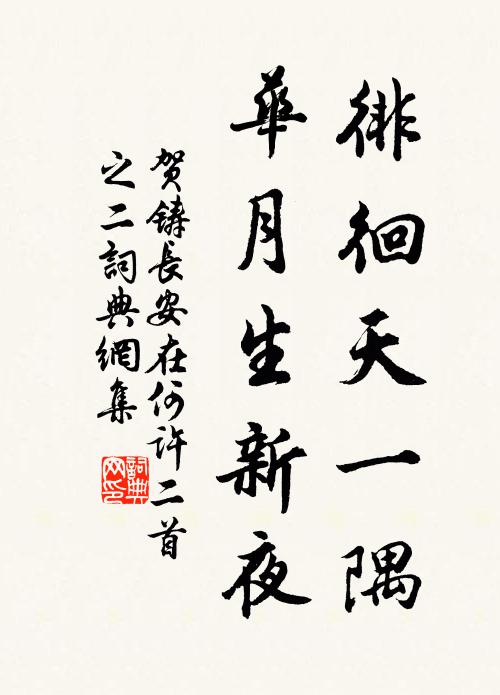 徘徊天一隅
華月生新夜
贺鑄長安在何許二首
之二詞典網集
詞典
网印